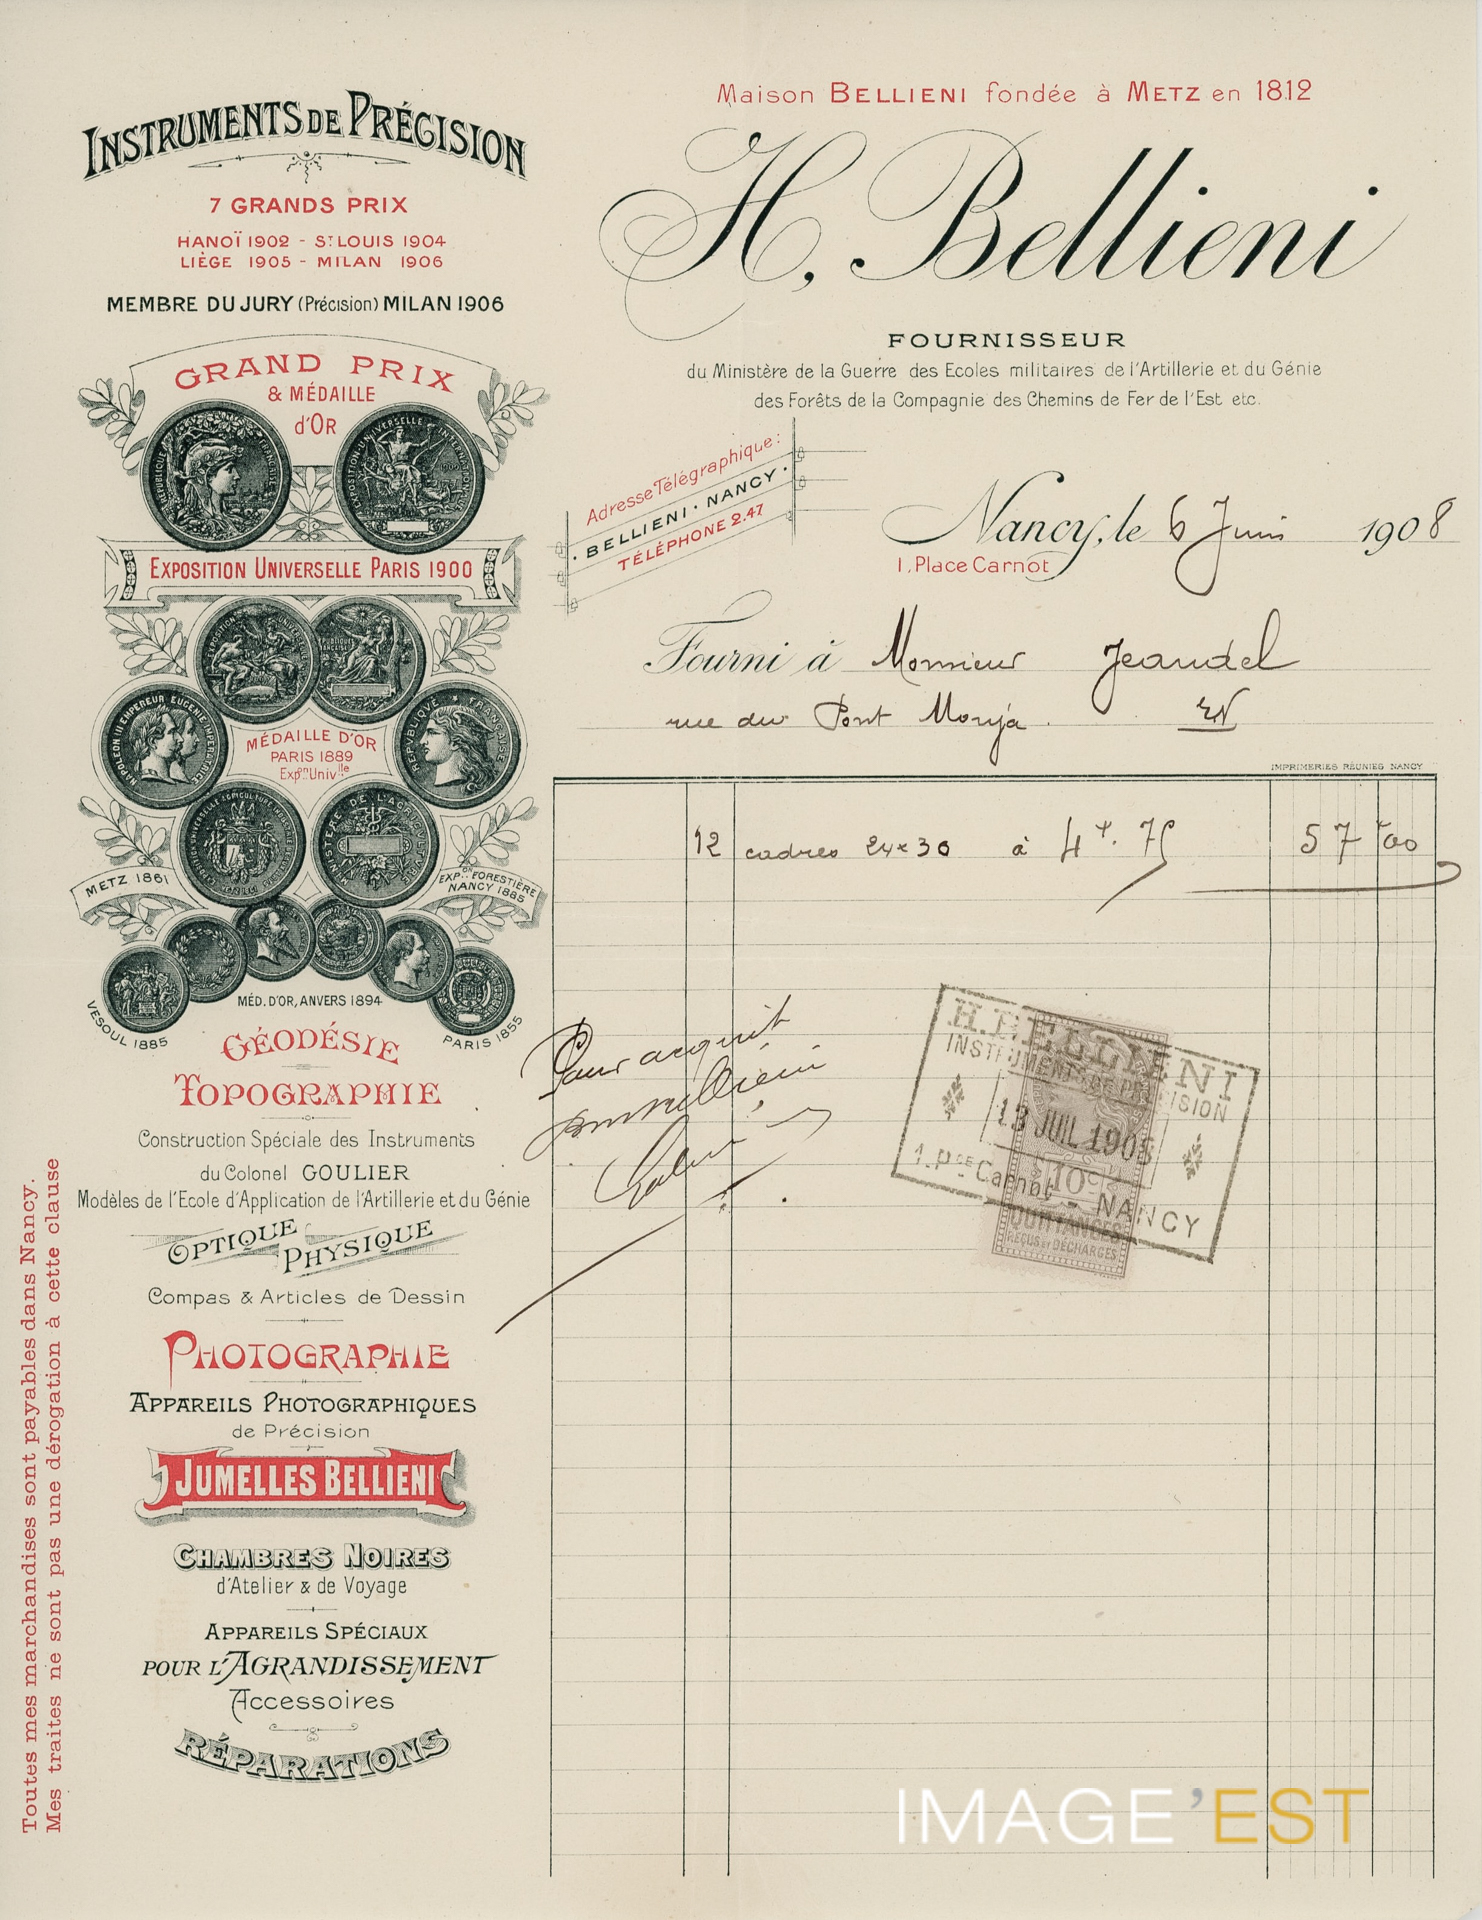 Maison BELLIENI fondée à METZ en 1812
INSTRUMENTS DE PRÉCISION
H. Bellieni
7 GRANDS PRIX
HANOÏ 1902 - ST LOUIS 1904
LIÈGE 1905 - MILAN 1906
MEMBRE DU JURY (Précision) MILAN 1906
FOURNISSEUR
du Ministère de la Guerre des Ecoles militaires de l'Artillerie et du Génie
des Forêts de la Compagnie des Chemins de Fer de l'Est etc.
GRAND PRIX
& MÉDAILLE
d'Or
RÉPUBLIQUE FRANÇAISE
EXPOSITION UNIVERSELLE INTERNATIONALE
1900
EXPOSITION UNIVERSELLE PARIS 1900
Adresse Télégraphique:
· BELLIENI · NANCY ·
TÉLÉPHONE 2.47
Nancy, le 6 Juin 1908
1, Place Carnot
Fourni à Monsieur Jeandel
rue du Pont Mouja. EN
IMPRIMERIES RÉUNIES NANCY
NAPOLEON III EMPEREUR EUGENIE IMPERATRICE
REPVBLIQVE ★ FRANÇAISE
MÉDAILLE D'OR
PARIS 1889
Expon Univlle
MINISTERE DE L'AGRICULTURE
12 cadres 24x30 à 4f. 75 57 f00
METZ 1861
EXPon FORESTIÈRE
NANCY 1885
VESOUL 1885
MÉD. D'OR, ANVERS 1894
PARIS 1855
GÉODÉSIE
TOPOGRAPHIE
Construction Spéciale des Instruments
du Colonel GOULIER
Modèles de l'Ecole d'Application de l'Artillerie et du Génie
OPTIQUE PHYSIQUE
Compas & Articles de Dessin
PHOTOGRAPHIE
APPAREILS PHOTOGRAPHIQUES
de Précision
JUMELLES BELLIENI
CHAMBRES NOIRES
d'Atelier & de Voyage
APPAREILS SPÉCIAUX
POUR L'AGRANDISSEMENT
Accessoires
RÉPARATIONS
Pour acquit
H. BELLIENI
INSTRUMENTS DE PRÉCISION
13 JUIL 1908
1. Pce Carnot - NANCY
10c
QUITTANCES
REÇUS ET DÉCHARGES
Toutes mes marchandises sont payables dans Nancy.
Mes traites ne sont pas une dérogation à cette clause
IMAGE'EST